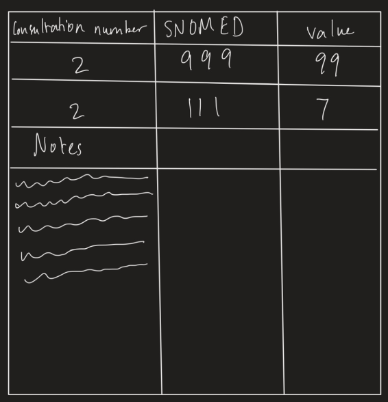 Consultation number SNOMED value
2 999 99
2 111 7
Notes